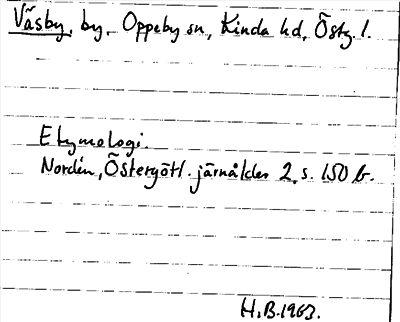 Väsby, by, Oppeby sn, Kinda hd, Östg. l.
Etymologi.
Nordén, Östergötl. järnålder 2, s. 150 f.
H.B. 1963.